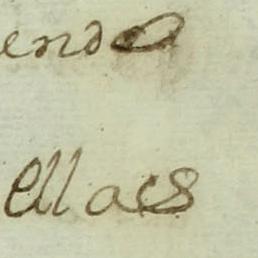 endo
ellaes